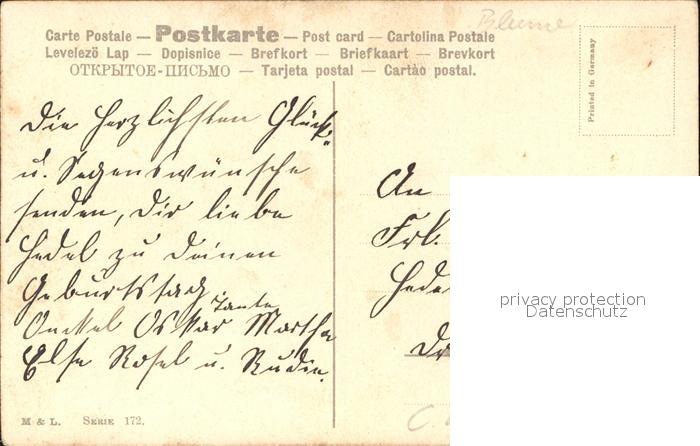 Blume
Carte Postale — Postkarte — Post card — Cartolina Postale
Levelező Lap — Dopisnice — Brefkort — Briefkaart — Brevkort
ОТКРЫТОЕ-ПИСЬМО — Tarjeta postal — Cartão postal.
Printed in Germany
Die herzlichsten Glück-
u. Segenswünsche
senden, Dir liebe
Hedel zu deinen
Geburtstag,
Onkel Oskar Tante Martha
Else Rosel u. Rudi.
An
Frl.
Hede
Dr
privacy protection
Datenschutz
M & L. SERIE 172.